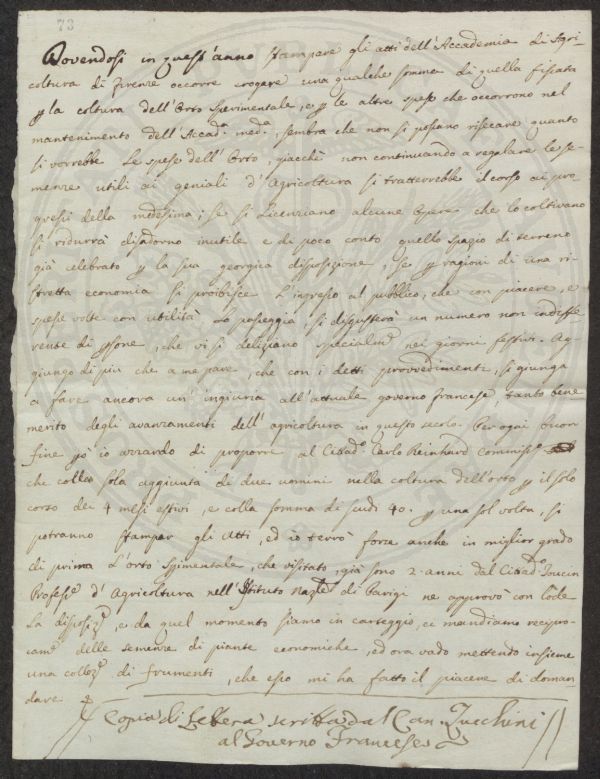 73
Dovendosi in quest'anno stampare gli atti dell'Accademia di Agri-
coltura di Firenze occorre erogare una qualche somma di quella fissata
p la coltura dell'Orto Sperimentale, e p le altre spese che occorrono nel
mantenimento dell'Accad.a med.a, sembra che non si possano risecare quanto
si vorrebbe le spese dell'Orto, giacchè non continuando a regalare le se-
menze utili ai geniali d'Agricoltura si tratterrebbe il corso ai pro-
gressi della medesima; se si Licenziano alcune Opere che lo coltivano
si ridurrà disadorno inutile e di poco conto quello spazio di terreno
già celebrato p la sua georgica disposizione, se p ragioni di una ri-
stretta economia si proibisce l'ingresso al pubblico, che con piacere, e
spesse volte con utilità lo passeggia, si disgusterà un numero non indiffe-
rente di psone, che vi si deliziano specialm.e nei giorni festivi. Ag-
giungo di più che a me pare, che con i detti provvedimenti, si giunga
a fare ancora un'ingiuria all'attuale governo francese, tanto bene
merito degli avanzamenti dell'agricoltura in questo secolo. Per ogni buon
fine pò io azzardo di proporre al Citad.o Carlo Reinhard Commiss.o
che colla sola aggiunta di due uomini nella coltura dell'orto p il solo
corso dei 4 mesi estivi, e colla somma di scudi 40. p una sol volta, si
potranno stampar gli Atti, ed io terrò forse anche in miglior grado
di prima l'orto spimentale, che visitato, già sono 2. anni dal Citad.o
Profess.e d'Agricoltura nell'Istituto Naz.le di Parigi ne approvò con lode
la disposiz.e, e da quel momento siamo in carteggio, ci mandiamo recipro-
cam.e delle semenze di piante economiche, ed ora vado mettendo insieme
una collez.e di frumenti, che esso mi ha fatto il piacere di doman-
dare
Copia di Lettera scritta dal Can. Zucchini
al Governo Francese